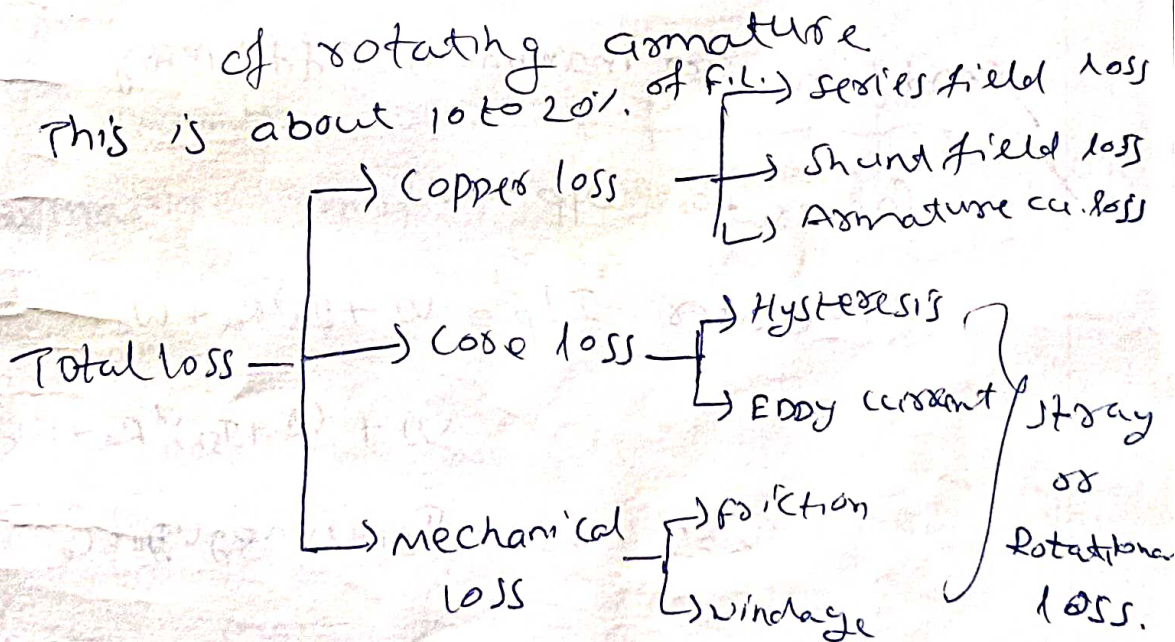 of rotating armature
This is about 10 to 20%. of F.L.
Total loss
→ Copper loss
→ series field loss
→ Shund field loss
→ Armature cu. loss
→ Core loss
→ Hysteresis
→ EDDY current
→ Mechanical loss
→ friction
→ windage
stray
or
Rotational
loss.